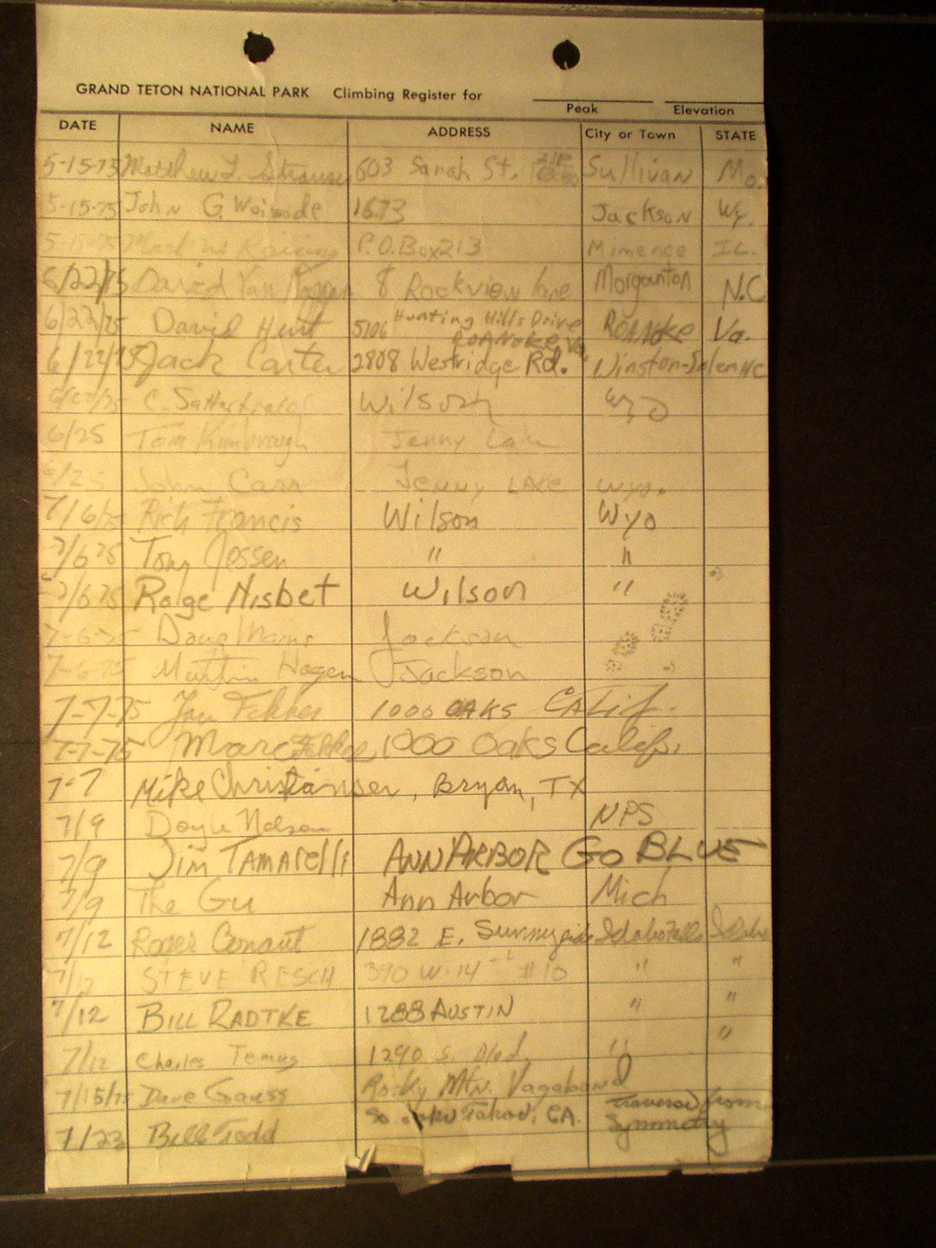 GRAND TETON NATIONAL PARK Climbing Register for
Peak Elevation
DATE NAME ADDRESS City or Town STATE
5-15-75 Matthew L. Strauser 603 Sarah St. Sullivan Mo.
5-15-75 John G. 1673 Jackson Wy.
5-15-75 Mark P.O. Box 213 Momence IL.
6/22/75 David Van 8 Rockview Lane Morganton N.C
6/22/75 David Hunt 5106 Hunting Hills Drive ROANOKE Va. ROANOKE Va.
6/22/75 Jack Carter 2808 Westridge Rd. Winston-Salem NC
C. Satterfield Wilson Wyo
6/25 Tom Kimbrough Jenny Lake
6/25 John Carr Jenny LAKE Wyo.
7/6/75 Rich Francis Wilson Wyo
7/6 75 Tom Jessen " "
7/6 75 Roge Nisbet Wilson "
7-6-75 Doug Jackson
7-6-75 Martin Hagen Jackson
7-7-75 1000 OAKS CALif.
7-7-75 Marc 1000 Oaks Calif.
7-7 Mike Christiansen, Bryan, TX
7/9 Doyle Nelson NPS
7/9 JIM TAMARELLI ANN ARBOR GO BLUE
7/9 The Gu Ann Arbor Mich
7/12 Roger Conant 1882 E. Sunnyside Idaho Falls Idaho
7/12 STEVE RESCH 390 W. 14th #10 " "
7/12 BILL RADTKE 1288 AUSTIN " "
7/12 Charles 1290 S. Blvd. " "
7/15/75 Dave Gauss Rocky Mtn. Vagabond
7/23 Bill Todd So. Lake Tahoe, CA. traversed from Symmetry